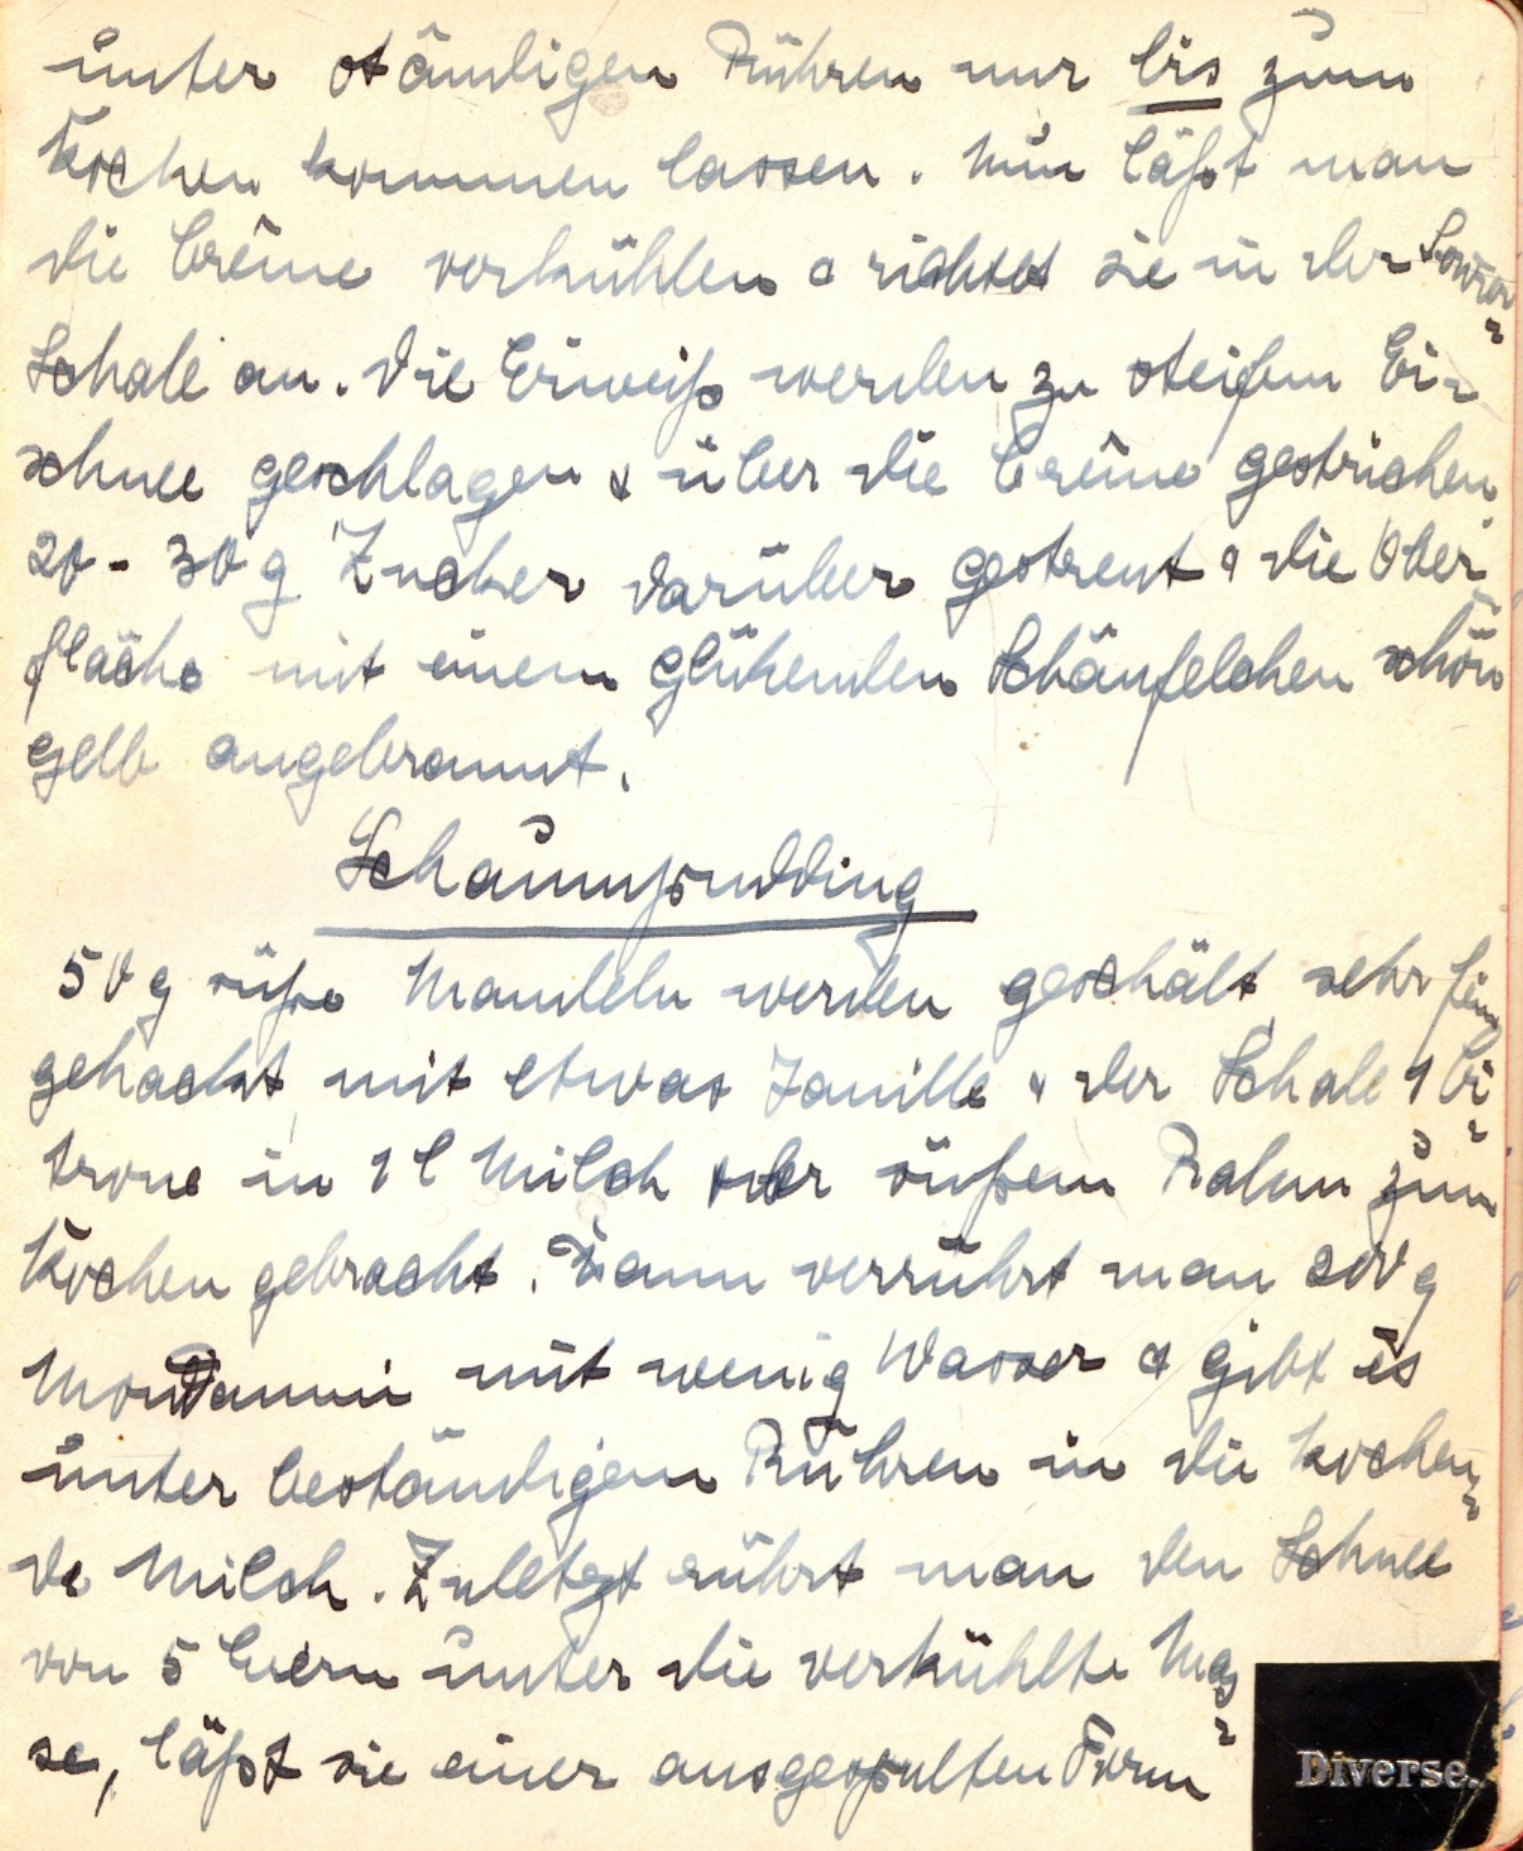 unter ständigen Rühren nur bis zum
Kochen kommen lassen. Nun läßt man
die Crême verkühlen & richtet sie in der Servier-
Schale an. Die Eiweiß werden zu steifem Ei-
schnee geschlagen & über die Crême gestrichen,
20 - 30 g Zucker darüber gestreut & die Ober-
fläche mit einem glühenden Schäufelchen schön
gelb angebrannt.
Schaumpudding
50 g süße Mandeln werden geschält, sehr fein
gehackt, mit etwas Vanille & der Schale 1 Ci-
trone in 1 l Milch oder süßem Rahm zum
Kochen gebracht. Dann verrührt man 200 g
Mondamin mit wenig Wasser & gibt es
unter beständigem Rühren in die kochen-
de Milch. Zuletzt rührt man den Schnee
von 5 Eiern unter die verkühlte Mas-
se, läßt sie einer ausgespülten Form
Diverse.